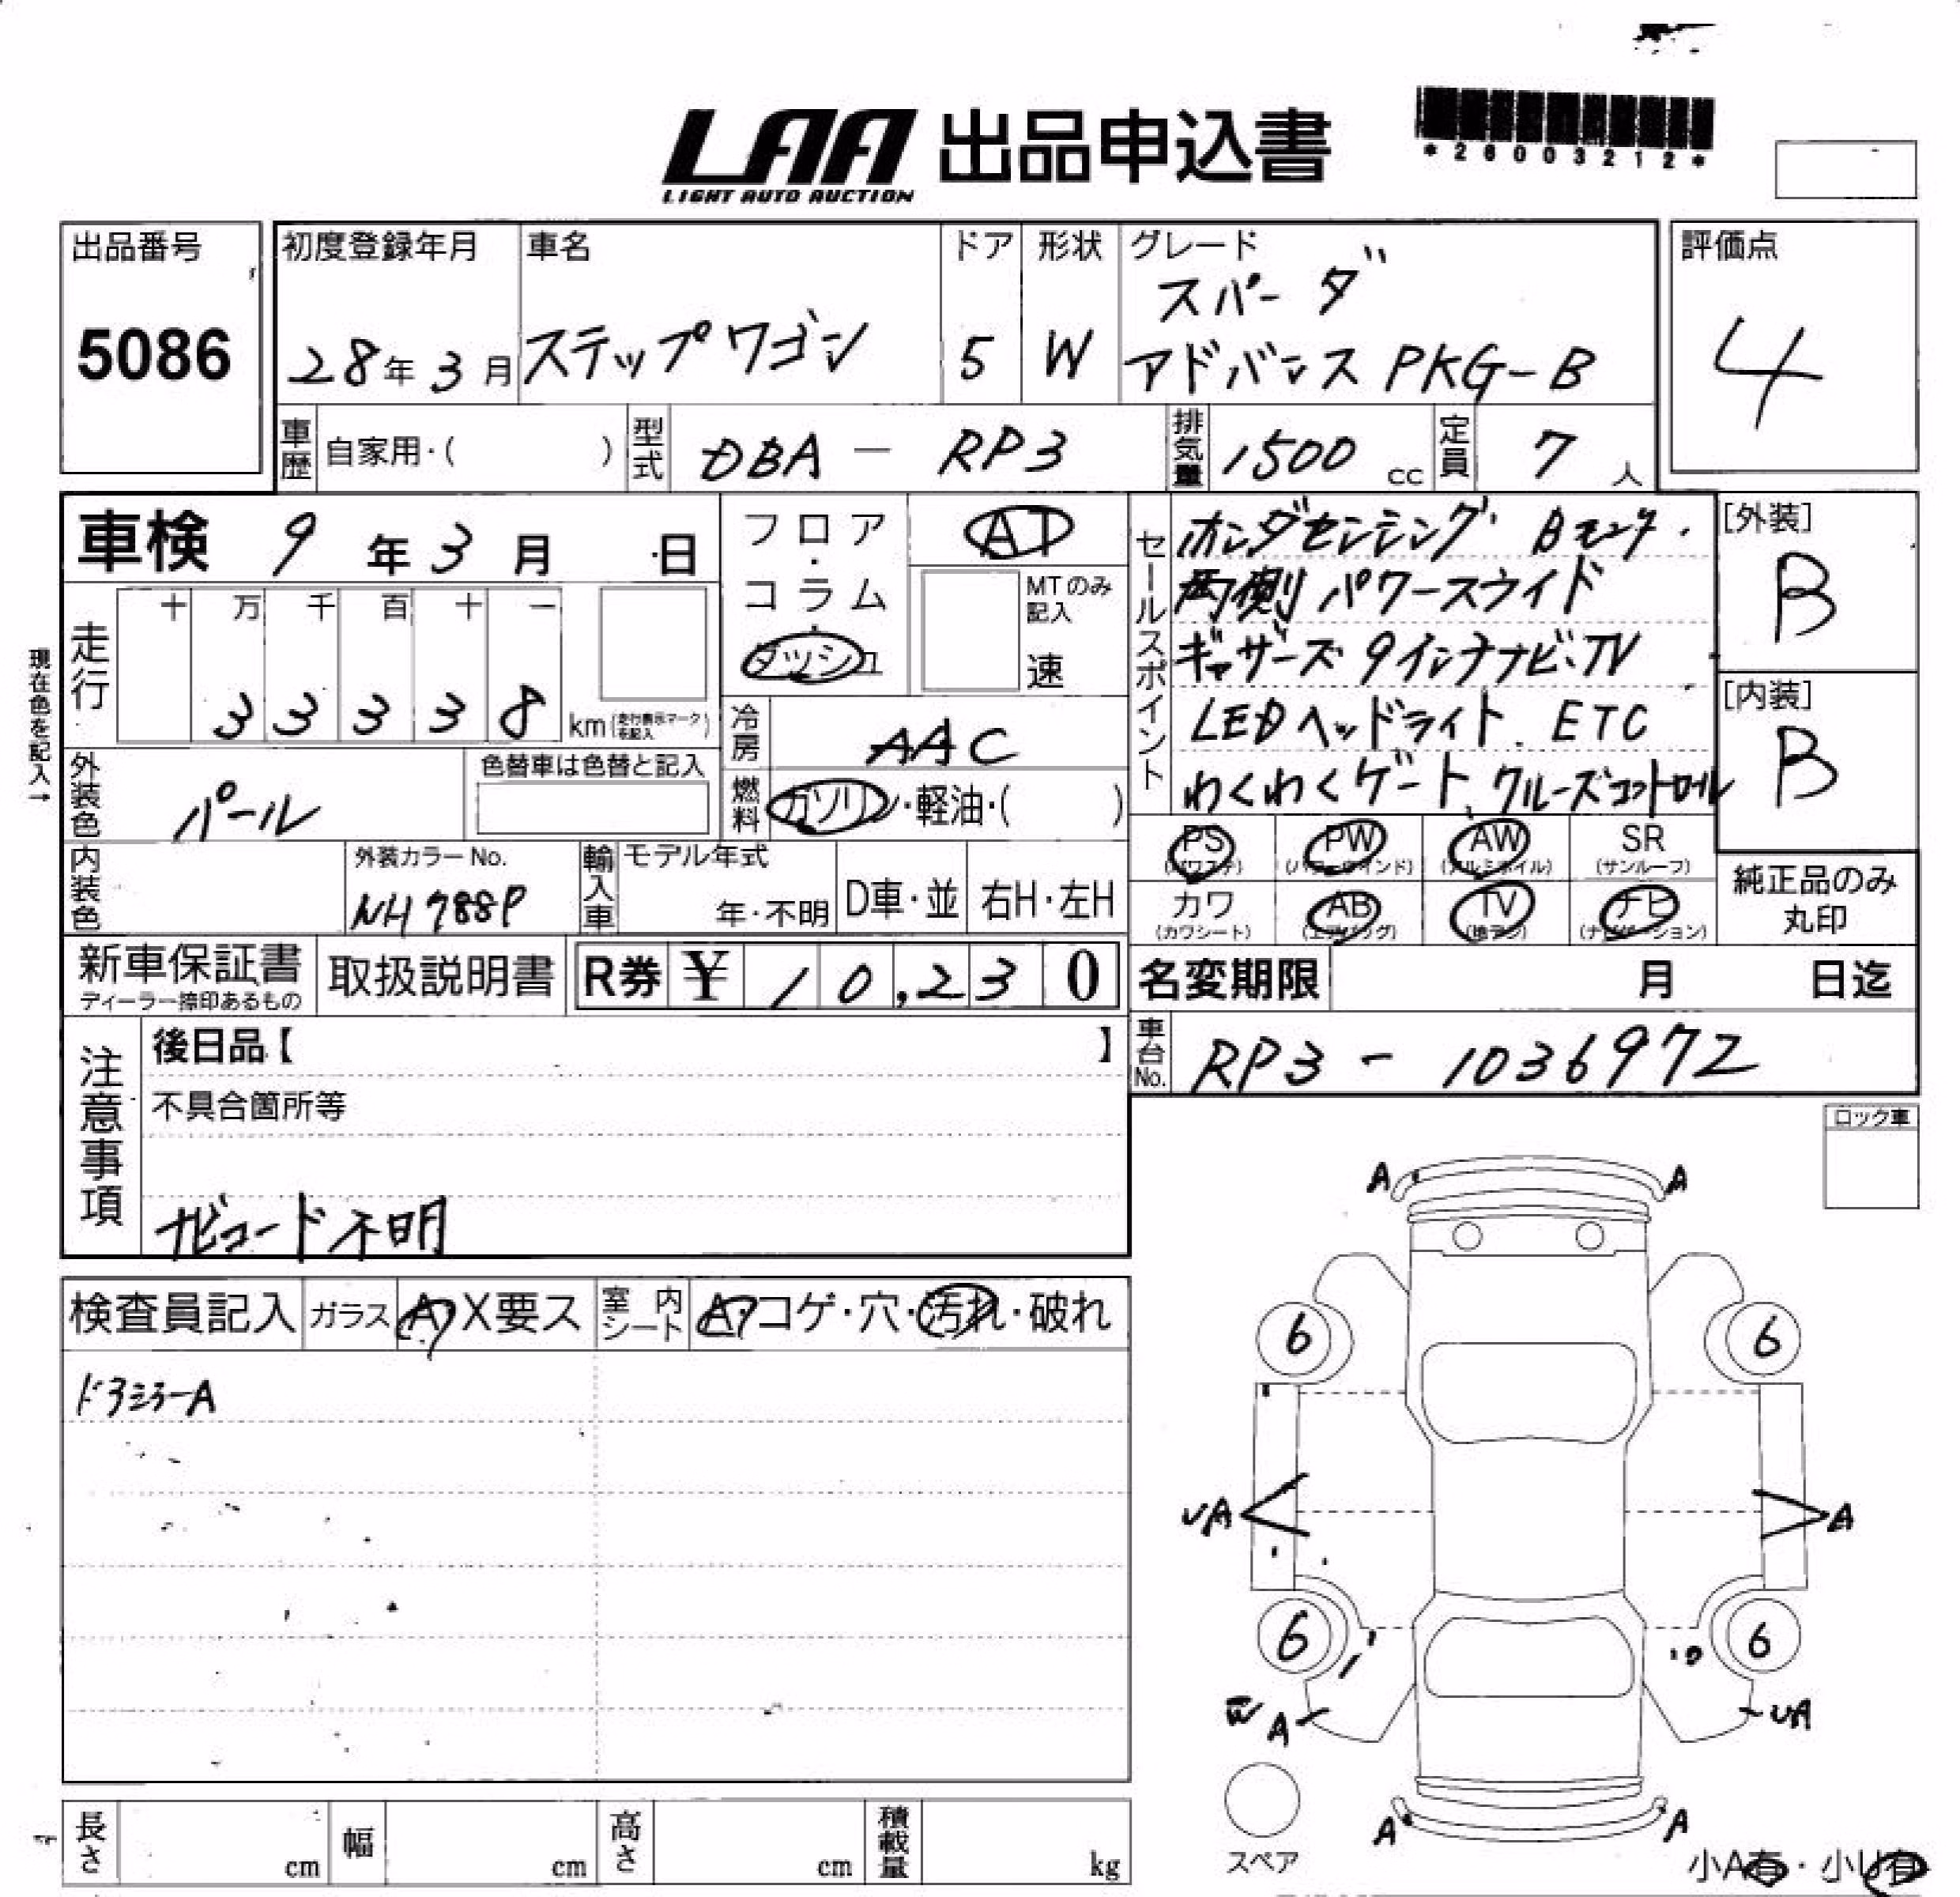 LAA 出品申込書
LIGHT AUTO AUCTION
*26003212*
出品番号
5086
初度登録年月
28年3月
車名
ステップワゴン
ドア
5
形状
W
グレード
スパーダ
アドバンス PKG-B
評価点
4
車歴
自家用・(　　)
型式
DBA - RP3
排気量
1500 cc
定員
7 人
車検 9年3月 日
フロア・コラム・ダッシュ
AT
MTのみ記入
速
現在色を記入→
走行
十 万 千 百 十 一
3 3 3 3 8 km(走行表示マークを記入)
冷房
AAC
燃料
ガソリン・軽油・(　　)
外装色
パール
色替車は色替と記入
内装色
外装カラーNo.
NH788P
輸入車
モデル年式
年・不明
D車・並
右H・左H
セールスポイント
ホンダセンシング
両側パワースライド
ギャザーズ9インチナビ・TV
LEDヘッドライト ETC
わくわくゲート、クルーズコントロール
[外装]
B
[内装]
B
PS PW AW SR
(パワステ) (パワーウインド) (アルミホイル) (サンルーフ)
カワ AB TV ナビ
(カワシート) (エアバッグ) (地デジ) (ナビゲーション)
純正品のみ
丸印
新車保証書
ディーラー捺印あるもの
取扱説明書
R券 ¥ 10,230
名変期限 月 日迄
車台No.
RP3 - 1036972
注意事項
後日品【　　】
不具合箇所等
ナビコード不明
ロック車
検査員記入
ガラス
A・X要ス
室内シート
A・コゲ・穴・汚れ・破れ
ドアミラーA
A A
6 6
UA A
6 6
A UA
A A
スペア
小A有・小U有
長さ cm
幅 cm
高さ cm
積載量 kg